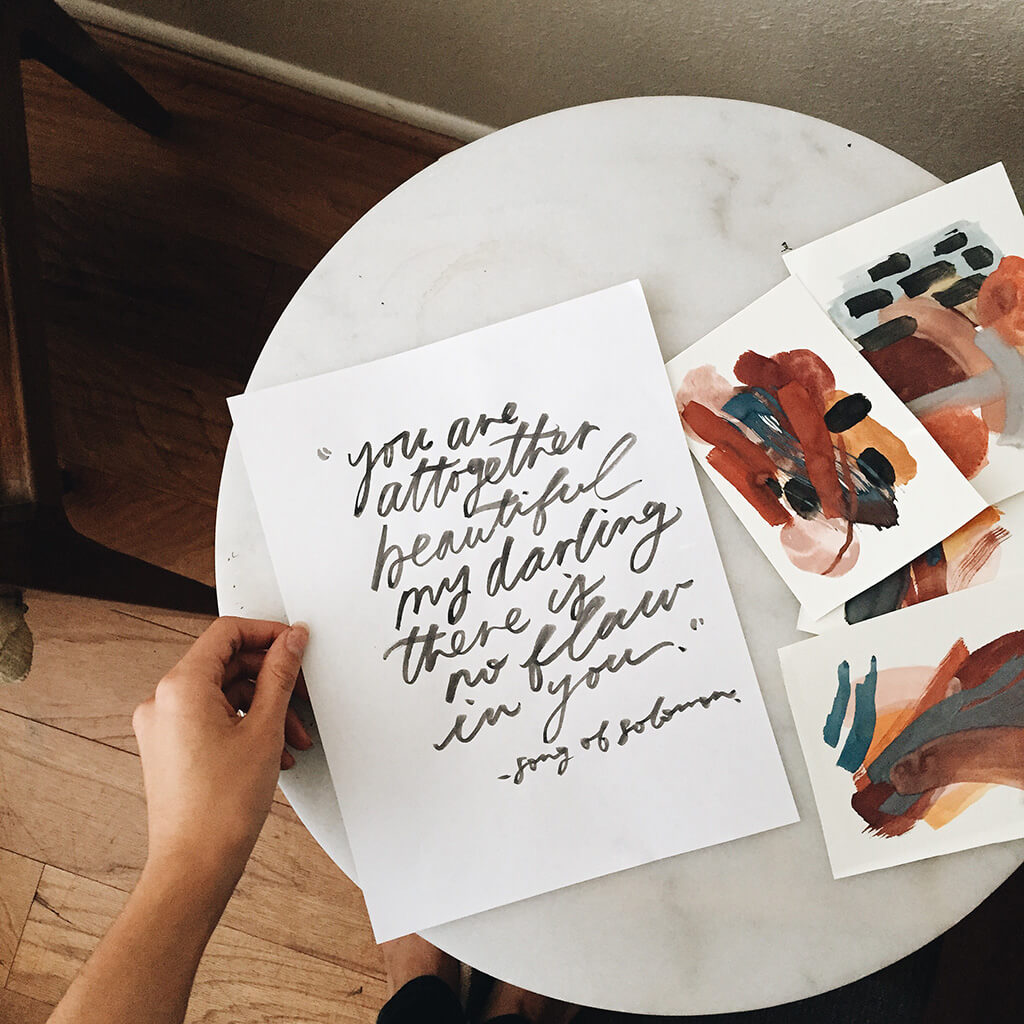 "you are
attogether
beautiful
my darling
there is
no flaw
in you."
-song of solomon.